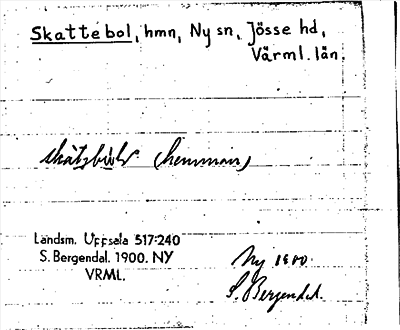 Skattebol, hmn, Ny sn, Jösse hd,
Värml. län.
(hemman)
Landsm. Uppsala 517:240
S. Bergendal. 1900. NY
VRML.
Ny 1900.
S. Bergendal.